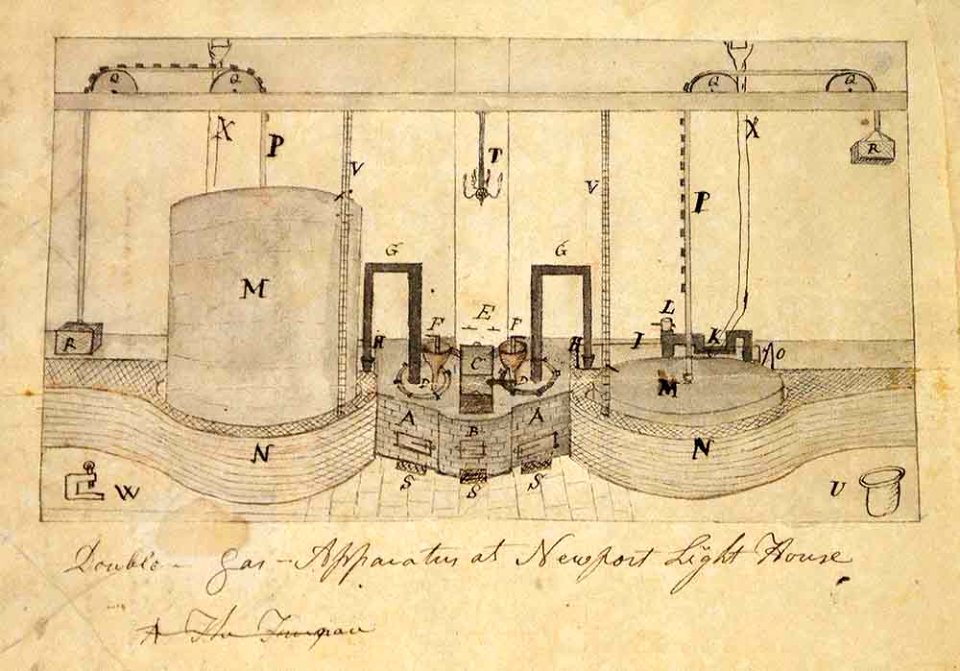 Q Q Q Q
X P V T V P X R
M G G
R F E F L
H H I K O
C M
D D
A B A
N N
S S S
W U
Double Gas-Apparatus at Newport Light House
A The